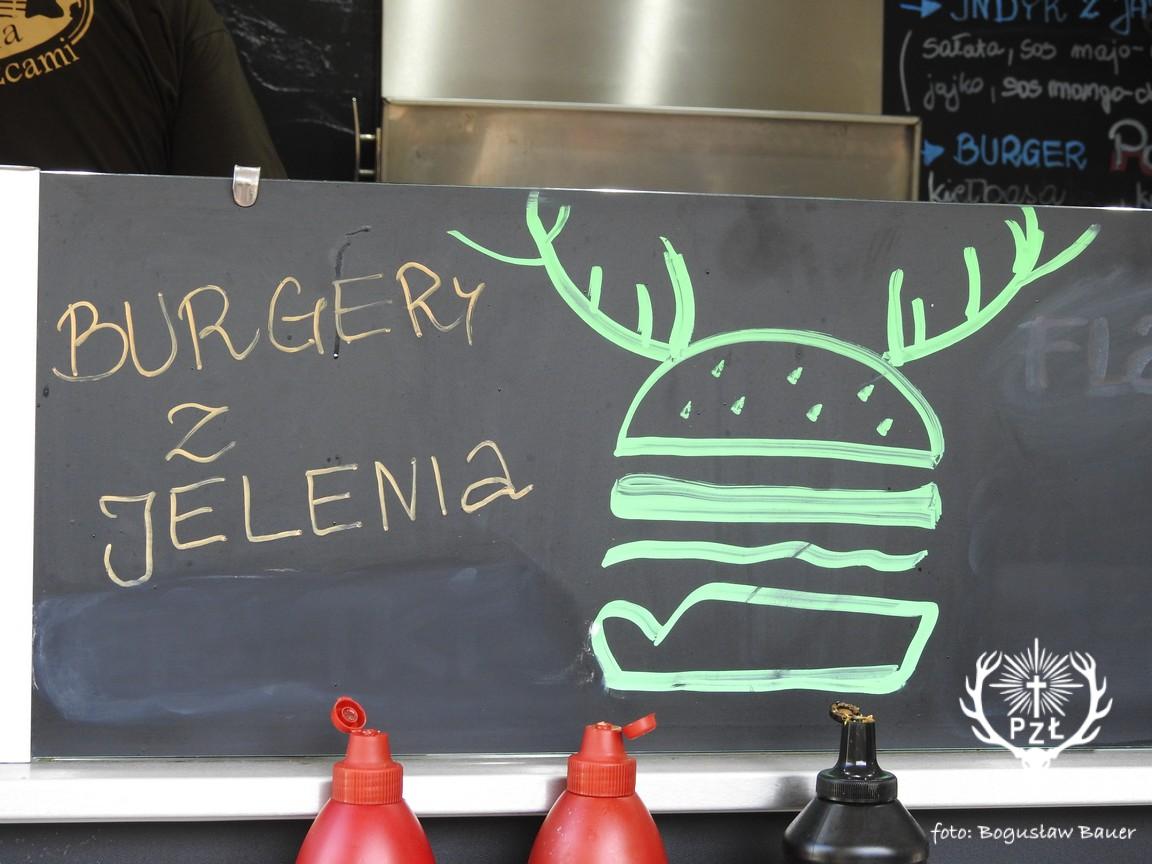 cami
INDYK Z
sałata, sos majo-
jajko, sos mango-
BURGER
kiełbasa
BURGERY
Z
JELENIA
PZŁ
foto: Bogusław Bauer